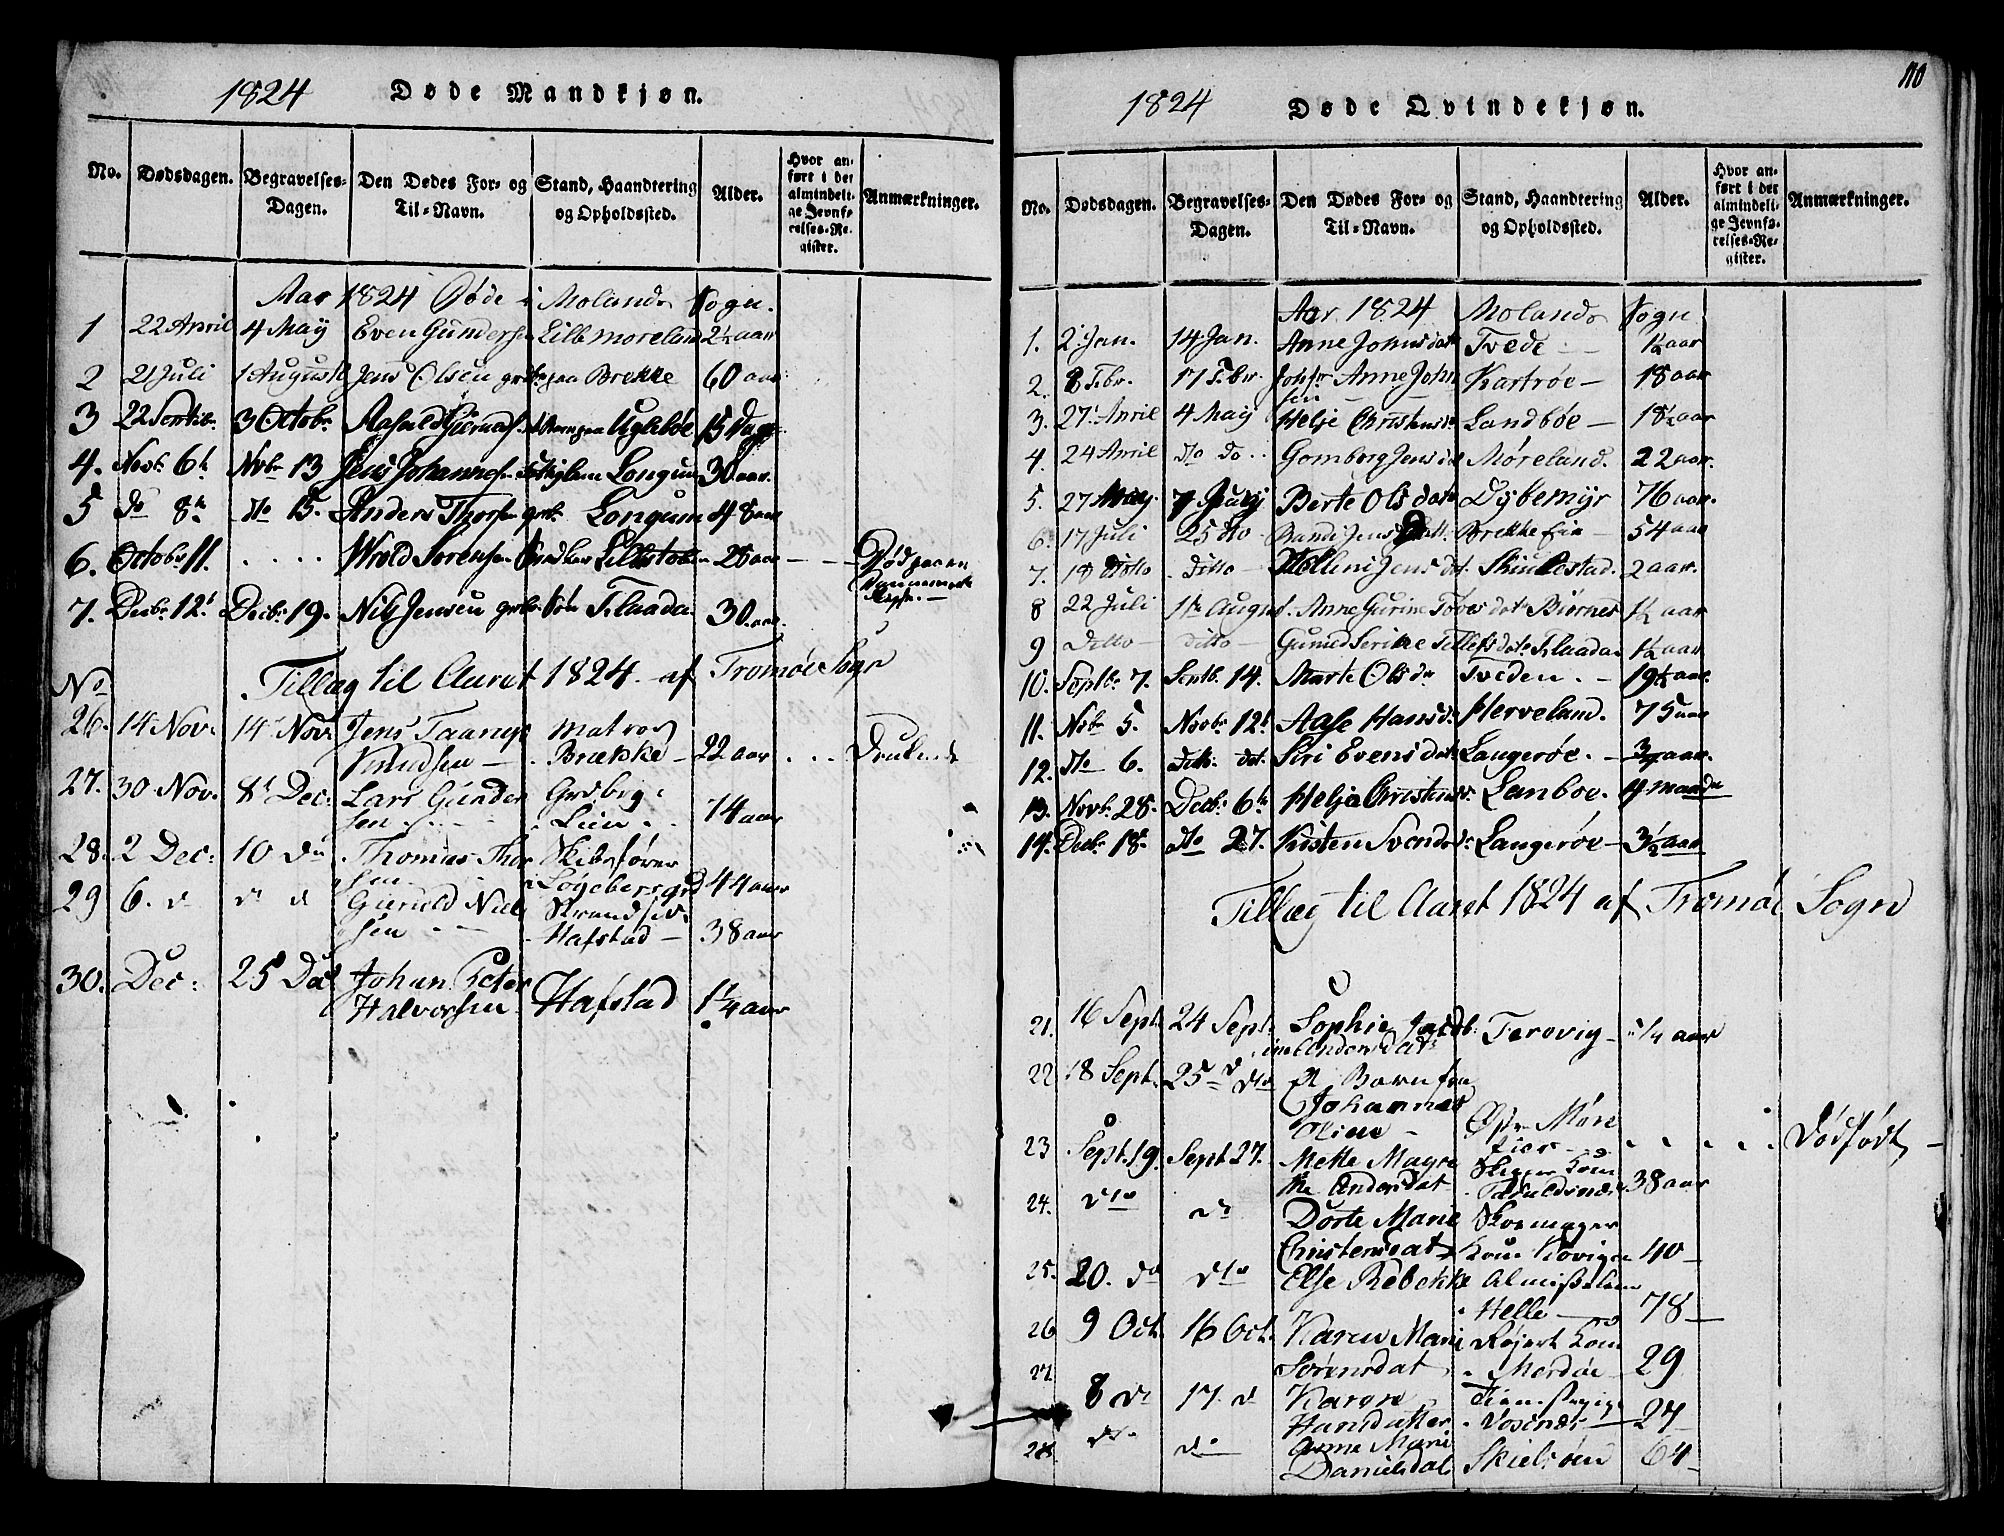 1824 Døde Mandkjøn.
No. Dødsdagen. Begravelses-Dagen. Den Dødes For- og Til-Navn. Stand, Haandtering og Opholdssted. Alder. Hvor anført i det almindelige Jevnførelses-Register. Anmærkninger.
Aar 1824 Døde i Molands Sogn.
1 22 April 4 May Even Gundersen Lille Moreland 2½ aar
2 21 Juli 1 August Jens Olsen paa Brekke 60 aar
3 22 Septbr. 3 Octobr. Ugleboe 15 Dage
4. Novbr 6te Nvbr 13 Jens Johannesen Longum 30 aar.
5 do 8de do 15. Anders Thorsen Longum 48 aar
6. Octobr 11. .... Wrold Sørensen 26 aar
7. Decbr 12te Decbr 19. Nils Jensen Flaada 30 aar
Tillæg til Aaret 1824 af Tromøe Sogn
No
26. 14 Nov. 14 Nov. Jens Taarup Matros
Knudsen Brække 22 aar ... Druknede
27. 30 Nov. 8de Dec: Lars Gunder
sen Lien 74 aar
28. 2 Dec: 10 do Thomas Thor Skibsfører
sen 44 aar
29 6. do do do Gunuld Niel Strandsid
sen Hafstad 38 aar
30. Dec: 25 Dec Johan Peter
Halvorsen Hafstad 1¼ aar
110
1824 Døde Qvindekjøn.
No. Dødsdagen. Begravelses-Dagen. Den Dødes For- og Til-Navn. Stand, Haandtering og Opholdssted. Alder. Hvor anført i det almindelige Jevnførelses-Register. Anmærkninger.
Aar 1824 Molands Sogn
1. 2 Jan. 14 Jan. Anne Johnsdatr Tvede 1½ aar
2. 8 Febr. 17 Febr. Anne John
sen Kartrøe 18 aar
3. 27 April 4 May Helje Christensdr Landbøe 18½ aar
4. 24 April do do Gomborg Jensdr Møreland. 22 aar.
5. 27 May. 7 Juny Berte Olsdatr Dybemyr 76 aar.
6. 17 Juli 25 dto Brekke 54 aar
7. 18 ditto ditto Jensdat. 2 aar.
8 22 Juli 1ste August. Anne Gurine Tøresdatr Biørnes 1½ aar
9 Ditto ditto Gunild Serine Tellefsdatr Flaada 1½ aar
10. Septbr 7. Septb. 14. Marte Olsdr Tveden. 19½ aar.
11. Nvbr 5. Novbr 12te Aase Hansdr Herveland. 75 aar
12. dto 6. ditto dto. Siri Evensdatr Langerøe. aar.
13. Novbr 28. Decbr 6te Helje Christensdr. Lanboe. 4 maander
14. Decbr 18. dto 27. Kisten Svendsdr Langerøe 3½ aar
Tillæg til Aaret 1824 af Tromøe Sogn
21. 16 Sept. 24 Sept. Sophie Jacob:
ine Andersdatr Terovig ¼ aar
22 18 Sept. 25 dto Et Barn fra
Johannes
Olsen Østre Møre Dødfødt
23 Sept. 19. Sept 27. Mette Magre Skipper Kone
the Andersdat 38 aar
24. dto do Dorte Marie Skomager
Christensdat Kone Kiøvigen 40
25. 20. do dto Else Rebekke Almisselem
Helle 78
26 9 Oct. 16 Oct. Karen Marie Kone
Sørensdat Merdøe 29
27 8 do 17. do Karen
Hansdatter 27
28. do do Anne Marie
Danielsdat Skielsøen 64